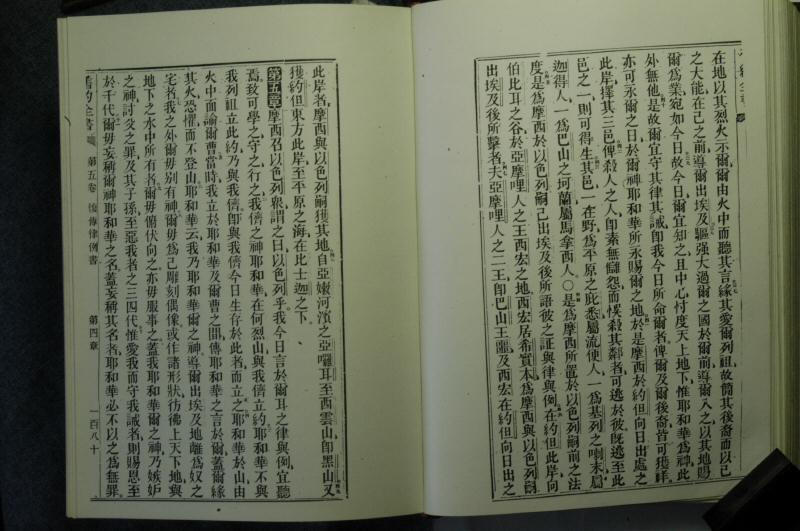 在地以其烈火示爾爾由火中而聽其言緣其愛爾列祖故簡其後裔而以己
之大能在己之前導爾出埃及驅強大過爾之國於爾前導爾入之以其地賜
爾為業宛如今日故今日爾宜知之且中心忖度天上地下惟耶和華為神此
外無他是故爾宜守其律其誡即我今日所命爾者俾爾及爾後裔皆可獲祥
亦可永爾之日於爾神耶和華所永賜爾之地於是摩西於約但向日出處之
此岸擇其三邑俾殺人之人即素無讎怨而悞殺其鄰者可逃於彼既逃至此
邑之一則可得生其邑一在野為平原之庇悉屬流便人一為基列之喇末屬
迦得人一為巴山之坷蘭屬馬拿西人○是為摩西所置於以色列嗣前之法
度是為摩西於以色列嗣已出埃及後所語彼之証與律與例在約但此岸向
伯比耳之谷於亞摩哩人之王西宏之地西宏居希實本為摩西與以色列嗣
出埃及後所擊者夫亞摩哩人之二王即巴山王噩及西宏在約但向日出之
此岸者摩西與以色列嗣獲其地自亞嫩河濱之亞囉耳至西雲山即黑山又
獲約但東方此岸至平原之海在比士迦之下
第五章摩西召以色列眾謂之曰以色列乎我今日言於爾耳之律與例宜聽
焉致可學之守之行之我儕之神耶和華在何烈山與我儕立約耶和華不與
我列祖立此約乃與我儕即與我儕今日生存於此者而立之耶和華於山由
火中面諭爾曹當時我立於耶和華及爾曹之間傳耶和華之言於爾蓋爾緣
其火恐懼而不登山耶和華云我乃耶和華爾之神導爾出埃及地離為奴之
宅者我之外爾毋別有神爾毋為己雕刻偶像或作諸形狀彷彿上天下地與
地下之水中所有者爾毋俯伏向之亦毋服事之蓋我耶和華爾之神乃嫉妒
之神討父之罪及其子孫至惡我者之三四代惟愛我而守我誡者則賜恩至
於千代爾毋妄稱爾神耶和華之名蓋妄稱其名者耶和華必不以之為無罪
舊約全書 第五卷 復傳律例書 第四章 一百八十